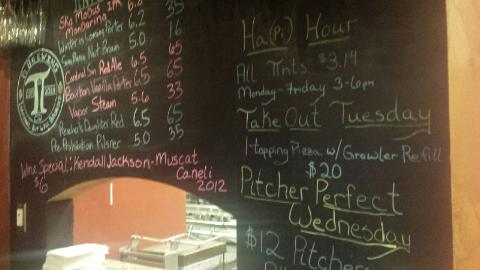 Ska Modus IPA 6.8
Mandarina 6.2 35
Winter is Coming Porter 5.0 16
Nut Brown
Cardinal Sin Red Ale 6.5 65
Bourbon Vanilla Porter 6.5 65
Vapor Steam 5.6 33
Daughter Red 6.5 65
Pre Prohibition Pilsner 5.0 35
Wine Special: Kendall Jackson - Muscat
$6 Caneli
2012
Ha(Pi) Hour
All Pints $3.14
Monday - Friday 3-6pm
Take Out Tuesday
1-topping Pizza w/ Growler Refill
$20
Pitcher Perfect
Wednesday
$12 Pitchers